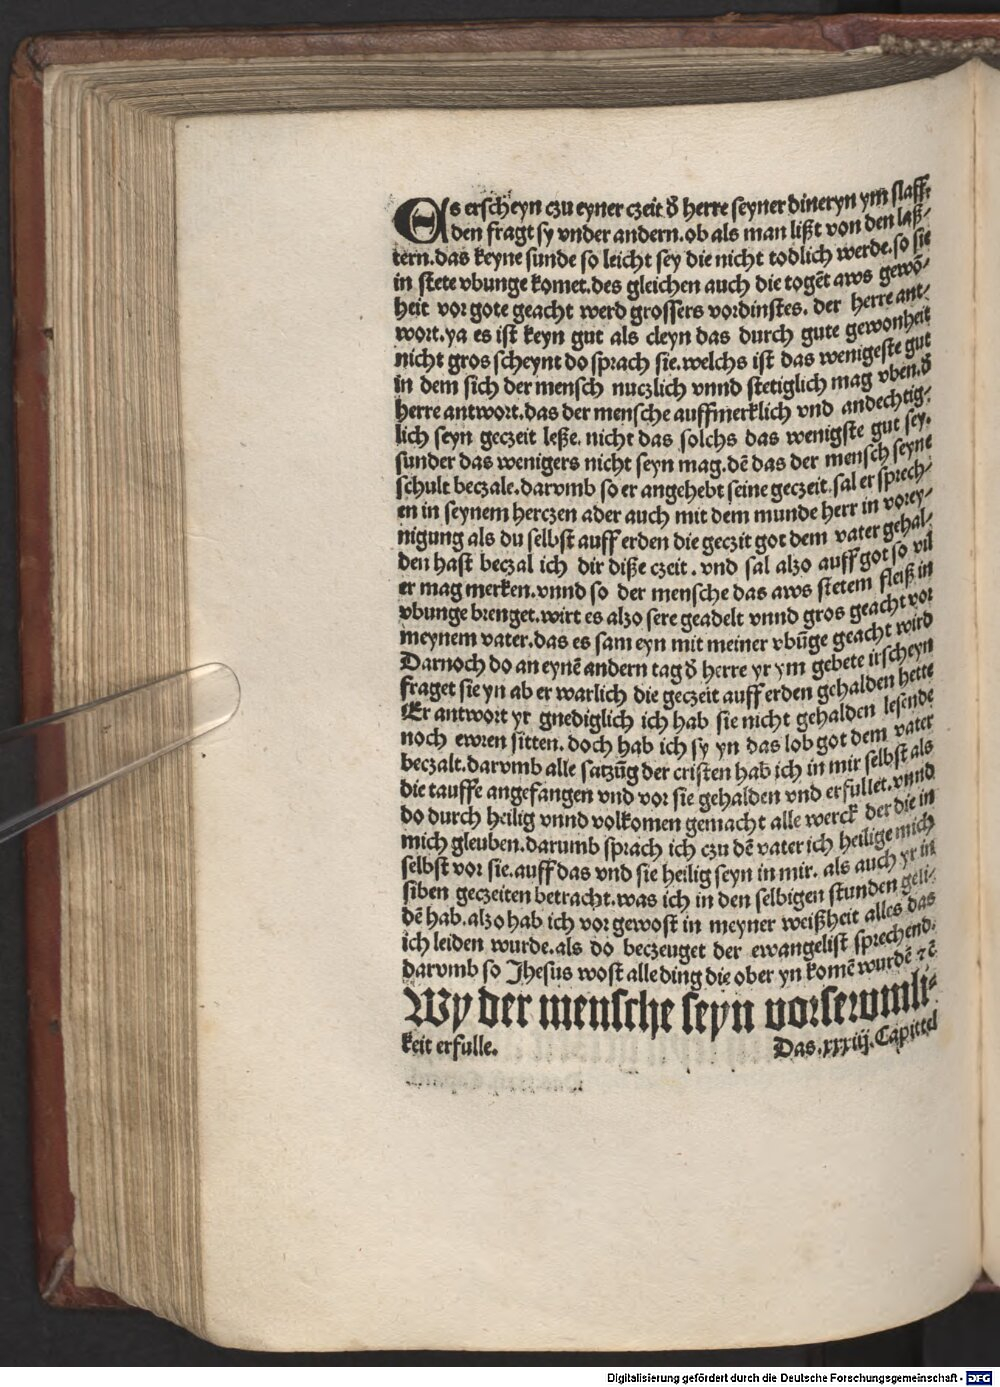 Es erscheyn czu eyner czeit d̕ herre seyner dineryn ym slaff-
den fragt sy vnder andern.ob als man lißt von den laß-
tern.das keyne sunde so leicht sey die nicht todlich werde.so sie
in stete vbunge komet.des gleichen auch die togēt aws gewō-
heit vor gote geacht werd grossers vordinstes. der herre ant-
wort.ya es ist keyn gut als cleyn das durch gute gewonheit
nicht gros scheynt do sprach sie.welchs ist das wenigeste gut
in dem sich der mensch nuczlich vnnd stetiglich mag vben.d̕
herre antwort.das der mensche auffmerklich vnd andechtig-
lich seyn geczeit leße. nicht das solchs das wenigste gut sey.
sunder das wenigers nicht seyn mag.dē das der mensch seyne
schult beczale.darvmb so er angehebt seine geczeit.sal er sprech-
en in seynem herczen ader auch mit dem munde herr in vorey-
nigung als du selbst auff erden die geczit got dem vater gehal-
den hast beczal ich dir diße czeit . vnd sal alzo auff got so vil
er mag merken.vnnd so der mensche das aws stetem fleiß in
vbunge brenget.wirt es alzo sere geadelt vnnd gros geacht vor
meynem vater.das es sam eyn mit meiner vbūge geacht wird
Darnoch do an eynē andern tag d̕ herre yr ym gebete irscheyn
fraget sie yn ab er warlich die geczeit auff erden gehalden hette
Er antwort yr gnediglich ich hab sie nicht gehalden lesende
noch ewren sitten. doch hab ich sy yn das lob got dem vater
beczalt.darvmb alle satzūg der cristen hab ich in mir selbst als
die tauffe angefangen vnd vor sie gehalden vnd erfullet.vnnd
do durch heilig vnnd volkomen gemacht alle werck der die in
mich gleuben.darumb sprach ich czu dē vater ich heilige mich
selbst vor sie.auff das vnd sie heilig seyn in mir. als auch yr in
siben geczeiten betracht.was ich in den selbigen stunden geli-
dē hab.alzo hab ich vor gewost in meyner weißheit alles das
ich leiden wurde.als do beczeuget der ewangelist sprechend.
darvmb so Jhesus wost alle ding die ober yn komē wurdē ⁊c̄
Wy der mensche seyn vorsewmli-
keit erfulle. Das.xxxiij.Capittel
Digitalisierung gefördert durch die Deutsche Forschungsgemeinschaft - DFG